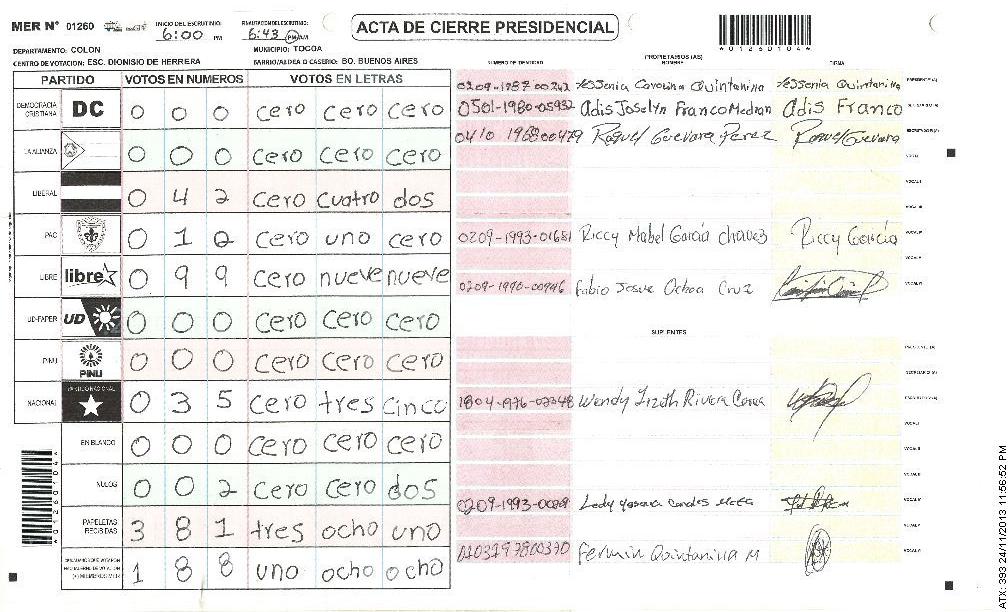 MER Nº 01260
INICIO DEL ESCRUTINIO: 6:00 PM
FINALIZACION DEL ESCRUTINIO: 6:43 PM AM
ACTA DE CIERRE PRESIDENCIAL
DEPARTAMENTO: COLON
MUNICIPIO: TOCOA
CENTRO DE VOTACION: ESC. DIONISIO DE HERRERA
BARRIO/ALDEA O CASERIO: BO. BUENOS AIRES
PARTIDO VOTOS EN NUMEROS VOTOS EN LETRAS
DEMOCRACIA CRISTIANA DC 0 0 0 cero cero cero
LA ALIANZA 0 0 0 cero cero cero
LIBERAL 0 4 2 cero cuatro dos
PAC 0 1 2 cero uno cero
LIBRE libre 0 9 9 cero nueve nueve
UD-FAPER UD 0 0 0 cero cero cero
PINU PINU 0 0 0 cero cero cero
NACIONAL PARTIDO NACIONAL 0 3 5 cero tres cinco
EN BLANCO 0 0 0 cero cero cero
NULOS 0 0 2 cero cero dos
PAPELETAS RECIBIDAS 3 8 1 tres ocho uno
1 8 8 uno ocho ocho
NUMERO DE IDENTIDAD
PROPIETARIOS (AS)
NOMBRE
FIRMA
0209-1987 00242 Yessenia Carolina Quintanilla Yessenia Quintanilla PRESIDENTE (A)
0501-1980-05932 Adis Joselyn Franco Adis Franco
0410 1968 00479 Raquel Guevara Perez Raquel Guevara SECRETARIO (A)
VOCAL I
VOCAL II
VOCAL III
0209-1993-01681 Riccy Mabel García chavez Riccy García VOCAL IV
VOCAL V
0209-1990-00946 Fabio Josue Ochoa Cruz VOCAL VI
SUPLENTES
PRESIDENTE (A)
SECRETARIO (A)
1804-1976-02348 Wendy Lizeth Rivera
VOCAL I
VOCAL II
VOCAL III
0209-1993- VOCAL IV
VOCAL V
Fermin Quintanilla M VOCAL VI
A01260104A
ATX: 393 24/11/2013 11:56:52 PM